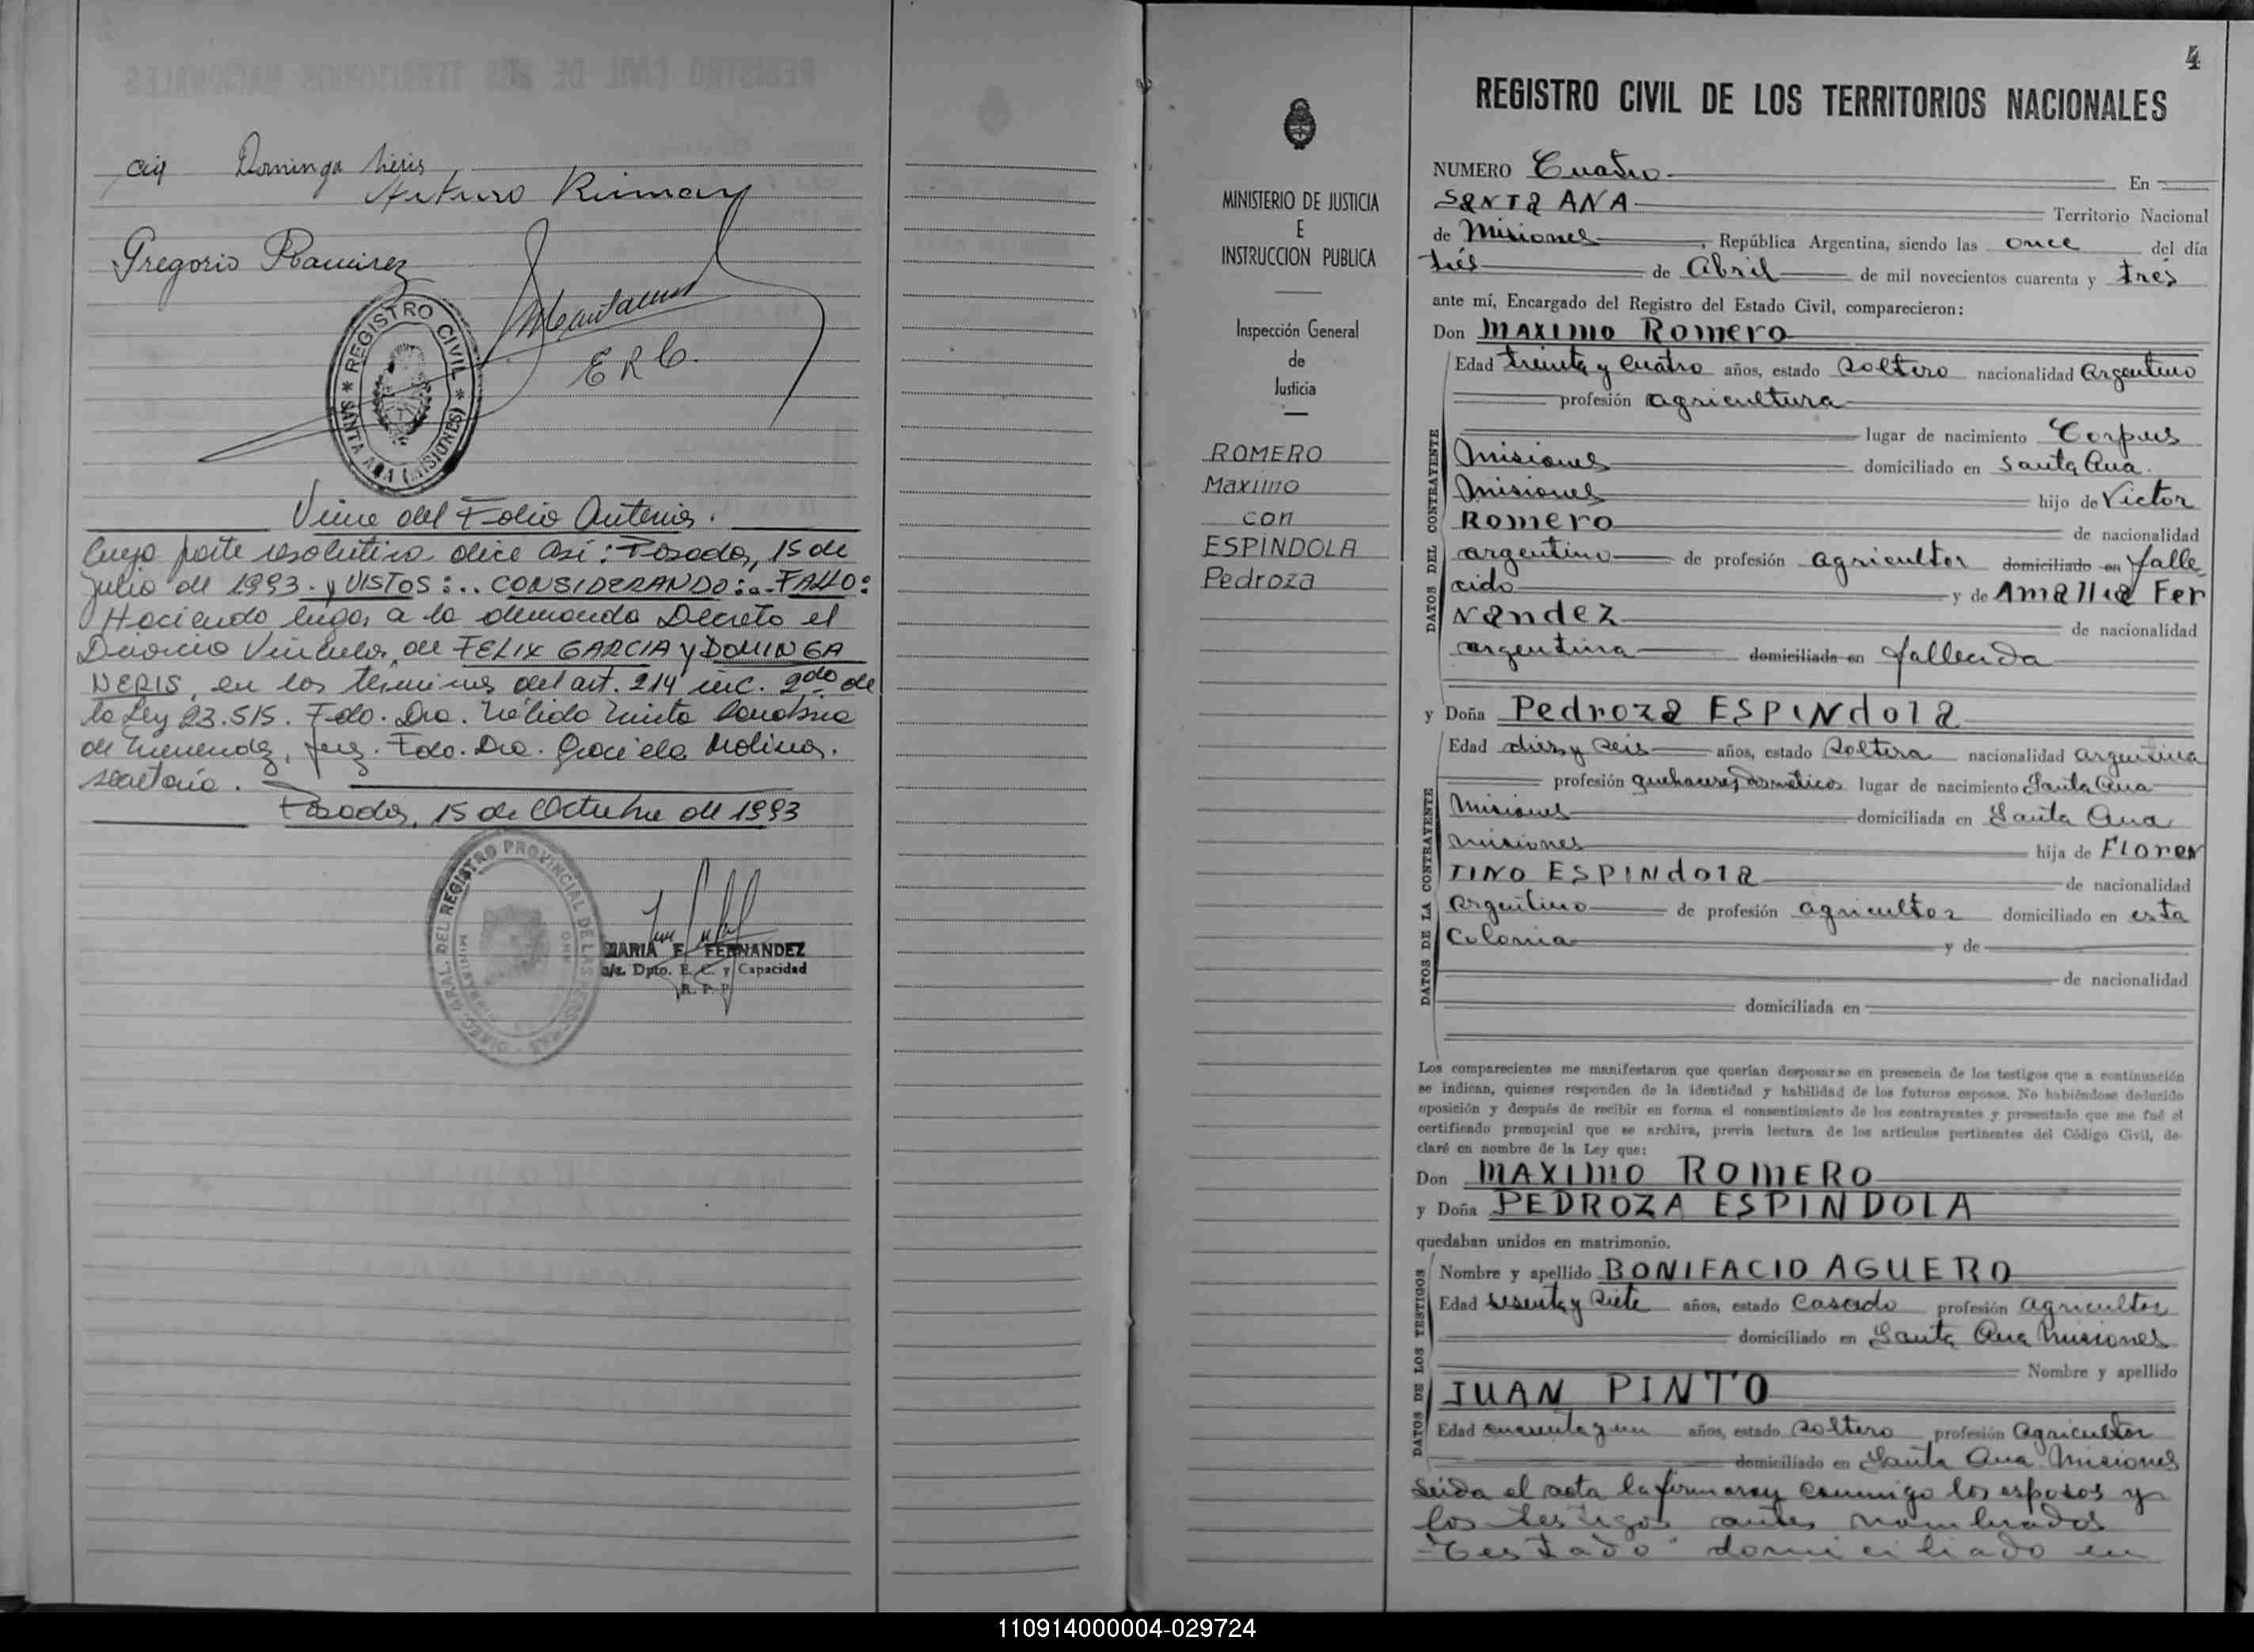 Dominga Neris
Arturo Rimay
Gregorio Ramirez
E R C.
* REGISTRO CIVIL *
SANTA ANA (MISIONES)
Viene del Folio Anterior.
Cuya parte resolutiva dice así: Posadas, 15 de
Julio de 1993. y VISTOS:.. CONSIDERANDO:.. FALLO:
Haciendo lugar a la demanda Decreto el
Divorcio Vincular de FELIX GARCIA y DOMINGA
NERIS, en los terminos del art. 214 inc. 2do de
la Ley 23.515. Fdo. Dra. Nélida
de Menendez, Juez. Fdo. Dra. Graciela Molina.
secretaria.
Posadas, 15 de Octubre de 1993
DIREC. GRAL. DEL REGISTRO PROVINCIAL DE LAS PERSONAS
MARIA F. FERNANDEZ
a/c. Dpto. E. C. y Capacidad
R. P. P.
MINISTERIO DE JUSTICIA
E
INSTRUCCION PUBLICA
Inspección General
de
Justicia
ROMERO
Maximo
con
ESPINDOLA
Pedroza
4
REGISTRO CIVIL DE LOS TERRITORIOS NACIONALES
NUMERO Cuatro En
SANTA ANA Territorio Nacional
de Misiones, República Argentina, siendo las once del día
trés de Abril de mil novecientos cuarenta y tres
ante mí, Encargado del Registro del Estado Civil, comparecieron:
Don MAXIMO Romero
DATOS DEL CONTRAYENTE
Edad treinta y cuatro años, estado soltero nacionalidad Argentino
profesión agricultura
lugar de nacimiento Corpus
Misiones domiciliado en Santa Ana.
Misiones hijo de Victor
Romero de nacionalidad
argentino de profesión agricultor domiciliado en falle
cido y de Amalia Fer
nandez de nacionalidad
argentina domiciliada en fallecida
y Doña Pedroza ESPINdola
DATOS DE LA CONTRAYENTE
Edad diez y seis años, estado soltera nacionalidad argentina
profesión quehaceres domésticos lugar de nacimiento Santa Ana
Misiones domiciliada en Santa Ana
Misiones hija de Floren
TINO ESPINdola de nacionalidad
argentino de profesión agricultor domiciliado en esta
Colonia y de
de nacionalidad
domiciliada en
Los comparecientes me manifestaron que querían desposarse en presencia de los testigos que a continuación
se indican, quienes responden de la identidad y habilidad de los futuros esposos. No habiéndose deducido
oposición y después de recibir en forma el consentimiento de los contrayentes y presentado que me fué el
certificado prenupcial que se archiva, previa lectura de los artículos pertinentes del Código Civil, de-
claré en nombre de la Ley que:
Don MAXIMO ROMERO
y Doña PEDROZA ESPINDOLA
quedaban unidos en matrimonio.
DATOS DE LOS TESTIGOS
Nombre y apellido BONIFACIO AGUERO
Edad sesenta y siete años, estado casado profesión agricultor
domiciliado en Santa Ana Misiones
Nombre y apellido
JUAN PINTO
Edad cuarenta y un años, estado soltero profesión Agricultor
domiciliado en Santa Ana Misiones
Leida el acta la firmaron conmigo los esposos y
los testigos antes nombrados
"Testado" domiciliado en
110914000004-029724